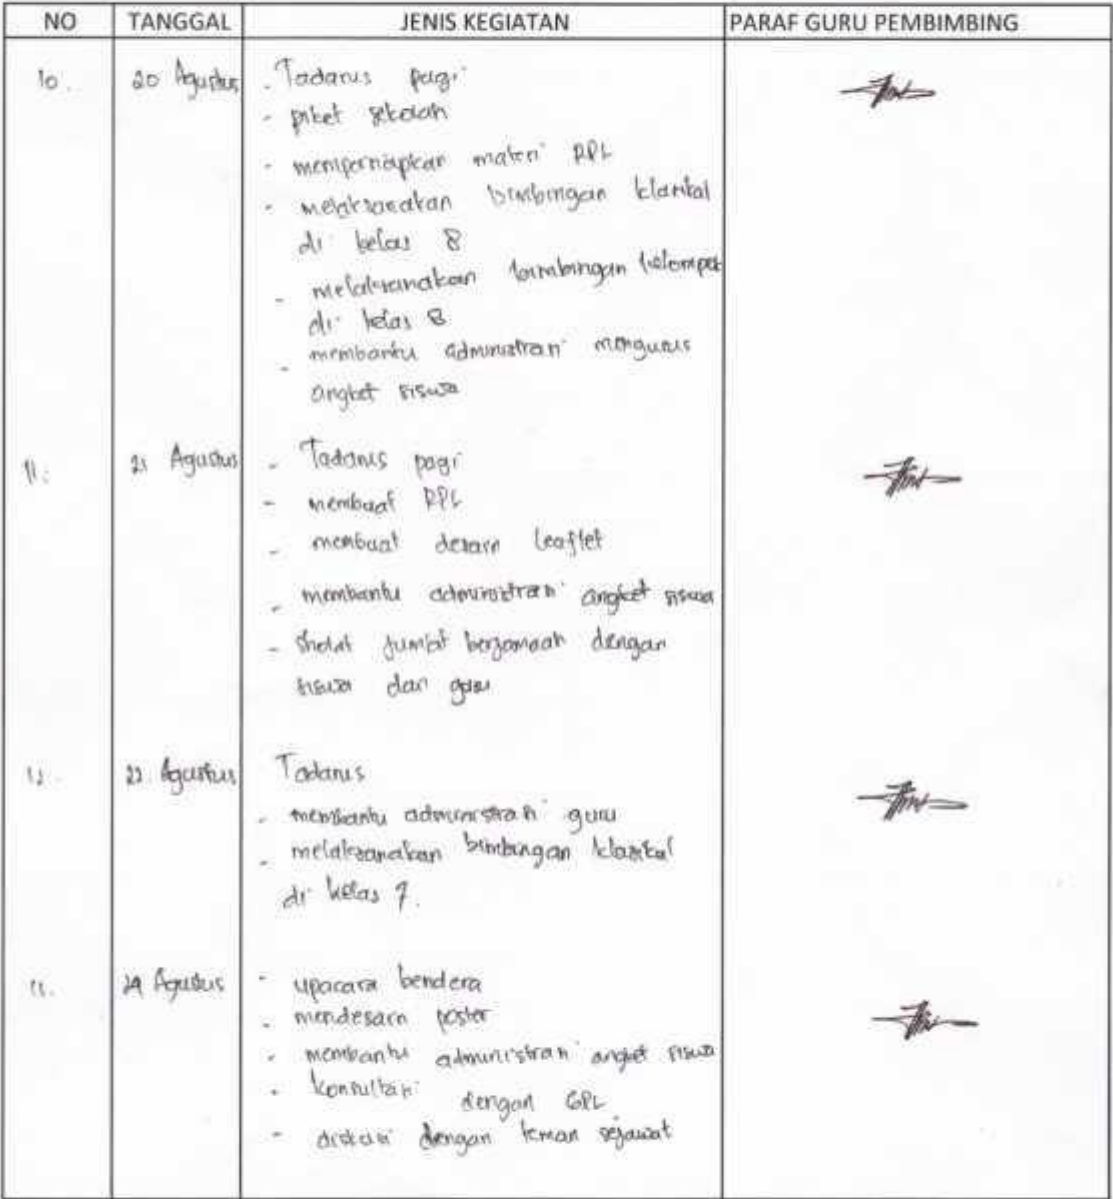 NO TANGGAL JENIS KEGIATAN PARAF GURU PEMBIMBING
10. 20 Agustus - Tadarus pagi
- piket sekolah
- mempersiapkan materi RPL
- melaksanakan bimbingan klasikal
di kelas 8
- melaksanakan bimbingan kelompok
di kelas 8
- membantu administrasi mengurus
angket siswa
11. 21 Agustus - Tadarus pagi
- membuat RPL
- membuat desain leaflet
- membantu administrasi angket siswa
- sholat jum'at berjamaah dengan
siswa dan guru
12. 22 Agustus Tadarus
- membantu administrasi guru
- melaksanakan bimbingan klasikal
di kelas 7.
13. 24 Agustus - upacara bendera
- mendesain poster
- membantu administrasi angket siswa
- konsultasi dengan GPL
- diskusi dengan teman sejawat